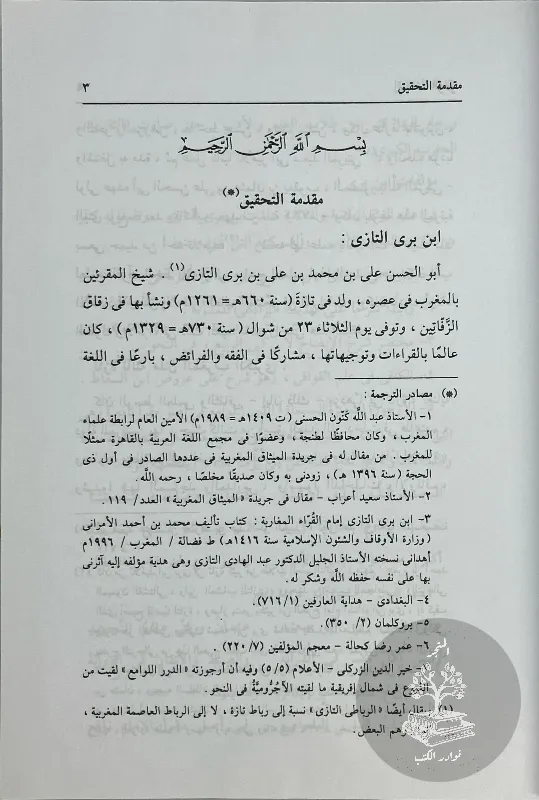 مقدمة التحقيق ٣
بسم الله الرحمن الرحيم
مقدمة التحقيق (*)
ابن برى التازى :
أبو الحسن على بن محمد بن على بن برى التازى (١) . شيخ المقرئين
بالمغرب فى عصره ، ولد فى تازَة (سنة ٦٦٠هـ = ١٢٦١م) ونشأ بها فى زقاق
الزَّقّاتِين ، وتوفى يوم الثلاثاء ٢٣ من شوال ( سنة ٧٣٠هـ = ١٣٢٩م ) ، كان
عالمًا بالقراءات وتوجيهاتها ، مشاركًا فى الفقه والفرائض ، بارعًا فى اللغة
(*) مصادر الترجمة :
١- الأستاذ عبد اللَّه كَنُون الحسنى ( ت ١٤٠٩هـ = ١٩٨٩م) الأمين العام لرابطة علماء
المغرب ، وكان محافظًا لطنجة ، وعضوًا فى مجمع اللغة العربية بالقاهرة ممثلًا
للمغرب . من مقال له فى جريدة الميثاق المغربية فى عددها الصادر فى أول ذى
الحجة (سنة ١٣٩٦ هـ) ، زودنى به وكان صديقًا مخلصًا ، رحمه اللَّه .
٢- الأستاذ سعيد أعراب - مقال فى جريدة «الميثاق المغربية» العدد/ ١١٩ .
٣- ابن برى التازى إمام القُرَّاء المغاربة : كتاب تأليف محمد بن أحمد الأمرانى
( وزارة الأوقاف والشئون الإسلامية سنة ١٤١٦هـ) ط فضالة / المغرب / ١٩٩٦م
أهدانى نسخته الأستاذ الجليل الدكتور عبد الهادى التازى وهى هدية مؤلفه إليه آثرنى
بها على نفسه حفظه اللَّه وشكر له .
٤- البغدادى - هداية العارفين (٧١٦/١)
٥- بروكلمان (٢/ ٣٥٠) .
٦- عمر رضا كحالة - معجم المؤلفين (٧/ ٢٢٠) .
خير الدين الزركلى - الأعلام (٥/٥) وفيه أن أرجوزته «الدرر اللوامع» لقيت من
فى شمال إفريقية ما لقيته الآجُرُّوميَّةُ فى النحو .
(١) يقال أيضًا «الرباطى التازى» نسبة إلى رباط تازة ، لا إلى الرباط العاصمة المغربية ،
البعض .
المتجر
نوادر الكتب